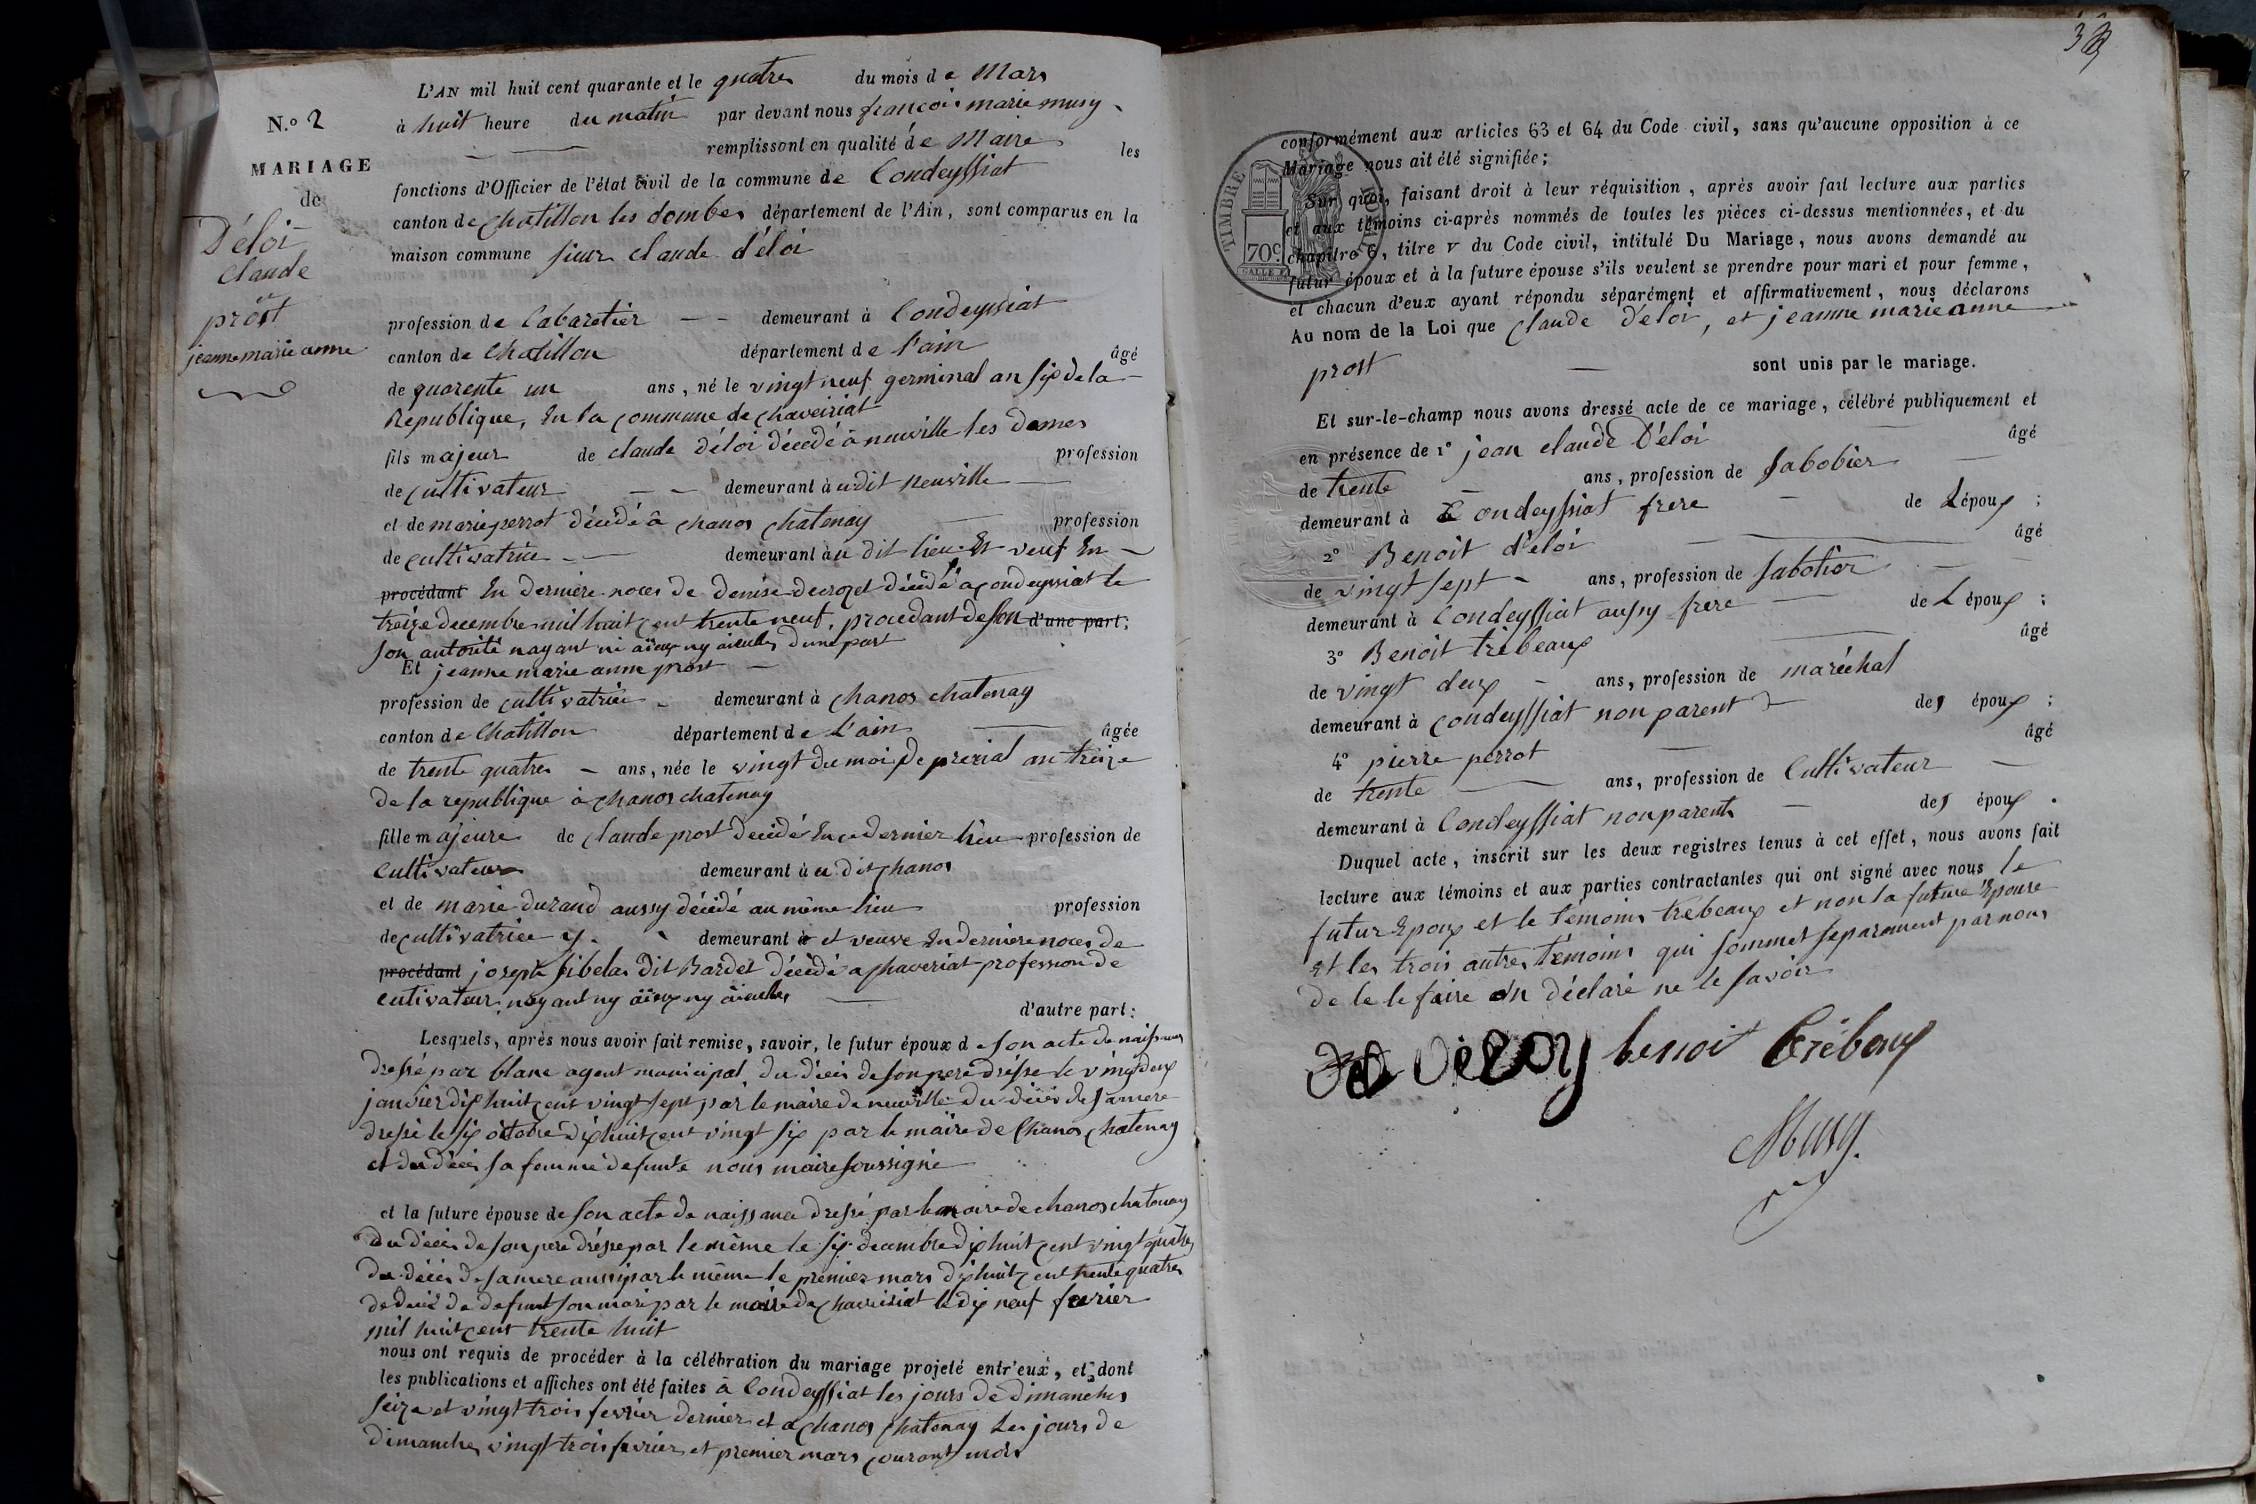 N.º 2
MARIAGE
de
Déloi
claude
et
prost
jeanne marie anne
L'AN mil huit cent quarante et le quatre du mois de Mars
à huit heure du matin par devant nous françois marie musy
remplissont en qualité de Maire les
fonctions d'Officier de l'état civil de la commune de Condeyssiat
canton de chatillon les dombes département de l'Ain, sont comparus en la
maison commune sieur claude déloi
profession de Cabaretier demeurant à Condeyssiat
canton de Chatillon département de l'ain âgé
de quarente un ans, né le vingt neuf germinal an six de la
Republique, En la commune de chaveiriat
fils majeur de claude déloi décédé à neuville les dames profession
de cultivateur demeurant à udit neuville
et de marie perrot décédé â chanos chatenay profession
de cultivatrice demeurant àu dit lieu Et veuf En
procédant En derniere noces de denise decrozel décédé a condeyssiat le
treize decembre mil huit cent trente neuf, procedant de son d'une part;
son autorité nayant ni aïeux ny aieulles d'une part
Et jeanne marie anne prost
profession de cultivatrice demeurant à chanos chatenay
canton de Chatillon département de L'ain âgée
de trente quatre ans, née le vingt du mois de prérial an treize
de la republique à chanos chatenay
fille majeure de claude prost decédé En ce dernier lieu profession de
cultivateur demeurant à u dit chanos
et de marie durand aussy décédé au même lieu profession
de cultivatrice y. demeurant à et veuve En derniere noces de
procédant joseph sibelas dit Bardet décédé a chaveriat profession de
cultivateur nayant ny aïeux ny aïeulles
d'autre part:
Lesquels, après nous avoir fait remise, savoir, le futur époux d e son acte de naissance
dressé par blanc agent municipal, du décés de son pere dressé le vingt deux
janvier dix huit cent vingt sept par le maire de neuville du décés de sa mere
dressé le six octobre dix huit cent vingt six par le maire de Chanos chatenay
et du décés sa femme defunte nous maire soussigné
et la future épouse de son acte de naissance dressé par le maire de chanos chatenay
du décés de son pere dressé par le même le six decembre dix huit cent vingt quatre
du décés de sa mere aussi par le même le premier mars dix huit cent trente quatre
de decés de defunt son mari par le maire de chaveiriat le dix neuf fevrier
mil huit cent trente huit
nous ont requis de procéder à la célébration du mariage projeté entr'eux, et dont
les publications et affiches ont été faites à Condeyssiat les jours de dimanches
seize et vingt trois fevrier dernier et a chanos chatenay Les jours de
dimanches vingt trois fevrier et premier mars courant mois
TIMBRE
70c.
conformément aux articles 63 et 64 du Code civil, sans qu'aucune opposition à ce
Mariage nous ait été signifiée;
Sur quoi, faisant droit à leur réquisition, après avoir fait lecture aux parties
et aux témoins ci-après nommés de toutes les pièces ci-dessus mentionnées, et du
chapitre 6, titre v du Code civil, intitulé Du Mariage, nous avons demandé au
futur époux et à la future épouse s'ils veulent se prendre pour mari et pour femme,
et chacun d'eux ayant répondu séparément et affirmativement, nous déclarons
Au nom de la Loi que claude Déloi, et jeanne marie anne
prost sont unis par le mariage.
Et sur-le-champ nous avons dressé acte de ce mariage, célébré publiquement et
en présence de 1º jean claude Déloi âgé
de trente ans, profession de sabobier
demeurant à Condeyssiat frere de Lépoux;
2º Benoit déloi âgé
de vingt sept ans, profession de sabotier
demeurant à Condeyssiat aussy frere de L époux;
3º Benoit trebeaux âgé
de vingt deux ans, profession de maréchal
demeurant à condeyssiat non parent des époux;
4º pierre perrot âgé
de trente ans, profession de Cultivateur
demeurant à Condeyssiat non parents des époux.
Duquel acte, inscrit sur les deux registres tenus à cet effet, nous avons fait
lecture aux témoins et aux parties contractantes qui ont signé avec nous le
futur Epoux et le témoins trebeaux et non la future Epouse
Et les trois autres témoins qui sommet separement par nous
de le le faire on déclaré ne le savoir
benoit trébaux
Musy.